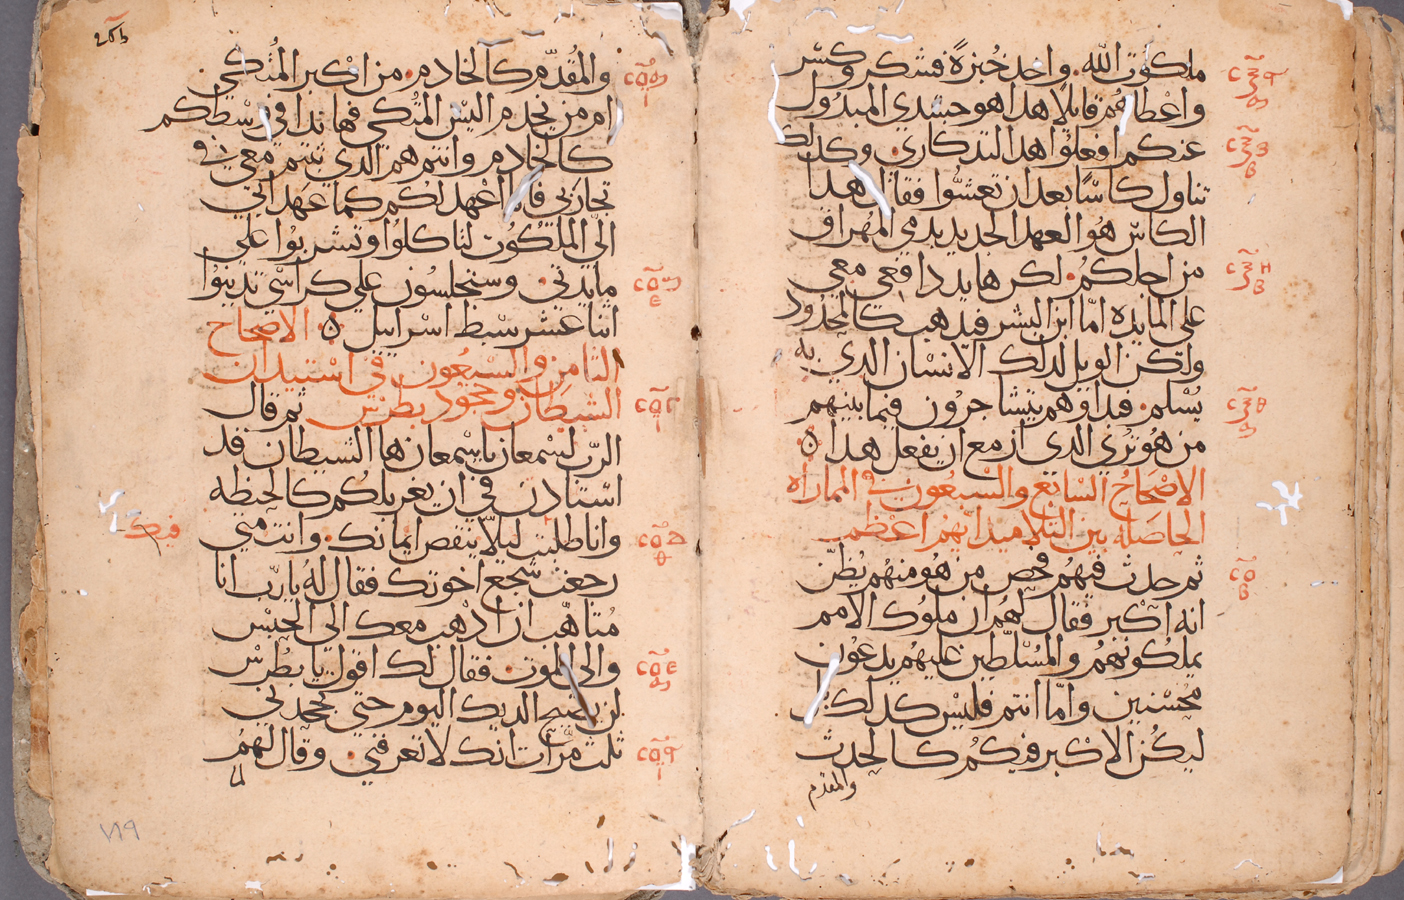 ملكوت الله. واخد خبزةً فشكر وكسر
واعطاهم قايلا هدا هو جسدي المبدول
عنكم افعلوا هدا لتدكاري. وكدلك
تناول كاسًا بعد ان تعشّوا فقال هدا
الكاس هُو العهد الجديد بدمي المُهراق
من اجلكُم. لكن ها يد دافعي معي
على المايده امّا ابن البشر فيدهب كالمحدود
ولكن الويل لدلك الانسان الدي به
يُسلم. فبداوهم يتشاجرُون فيما بينهم
من هُو تري الدي ازمع ان يفعل هدا ں
الاصحَاحُ السَابع والسبعُون في المماراه
الحَاصَله بين التلاميد ايهم اعظم
ثم حدث فيهُم فحص من هُو منهُم يُظنّ
انه اكبر فقال لهُم ان ملوك الامم
يملكونهُم والمُسلّطين عليهم يدعُون
مُحسنين وامّا انتم فليس كدلك بل
ليكُن الاكبر فيكُم كالحدث
والمقدم
والمُقدّم كالخادم. من اكبر المُتكي
ام من يخدم اليس المتّكي فهاندا في وسطكم
كالخادم وانتم هم الدي تبتم معي في
تجاربي فانا اعهد لكُم كما عَهَد ابي
اليّ الملكُوت لتاكلوا وتشربُوا علي
مايدتي. وستجلسُون علي كراسّي تدينُوا
اتنا عشر سبط اسراييل ں الاصحاح
الثامن والسبعُون في استيدان
الشيطان وجحود بطرس ثم قال
الربّ لسمعان ياسمعان ها الشيطان قد
استادن في ان يغربلكُم كالحنطه
وانا طلبت ليلّا ينقص ايمانك. وانت متي
رجعت شجع اخوتك فقال لهُ يا ربّ انا
مُتاهّب ان ادهب معك الي الحبس
والي الموت. فقال لك اقول يا بُطرس
لن يصيح الديك اليوم حتي تجحدني
ثلث مرّات انك لا تعرفني. وقال لهُم
لما
٧١٩